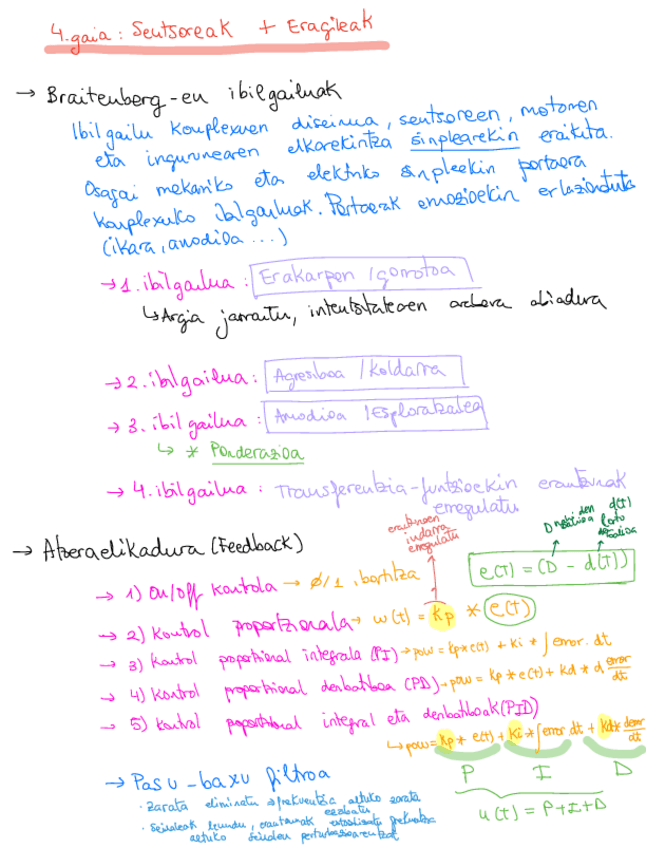 4.gaia: Sentsoreak + Eragileak
→ Braitenberg-en ibilgailuak
Ibilgailu konplexuen diseinua, sentsoreen, motorren
eta ingurunearen elkarekintza sinplearekin eraikita.
Osagai mekaniko eta elektriko sinpleekin portaera
konplexuko ibilgailuak. Portaerak emozioekin erlazionatuta
(ikara, amodioa ...)
→ 1. ibilgailua: Erakarpen / gorrotoa
↳ Argia jarraitu, intentsitatearen arabera abiadura
→ 2. ibilgailua: Agresiboa / Koldarra
→ 3. ibilgailua: Amodioa / Esploratzailea
↳ * Ponderazioa
→ 4. ibilgailua: Transferentzia-funtzioekin erantzunak
erregulatu
erantzunaren
indarra
erregulatu
→ Atzeraelikadura (Feedback)
e(t) = (D - d(t))
→ 1) On/off kontrola → 0/1, bortitza
→ 2) Kontrol proportzionala → u(t) = Kp * e(t)
→ 3) Kontrol proportzional integrala (PI) → pow = Kp*e(t) + Ki * ∫ error. dt
→ 4) Kontrol proportzional deribatiboa (PD) → pow = Kp * e(t) + Kd * d error/dt
→ 5) Kontrol proportzional integral eta deribatiboak (PID)
↳ pow = Kp * e(t) + Ki * ∫ error dt + Kd * derror/dt
P I D
u(t) = P+I+D
→ Pasu-baxu filtroa
· Zarata eliminatu → frekuentzia altuko zarata
· Seinaleak leundu, erantzunak
altuko seinaleen perturbazioarentzat